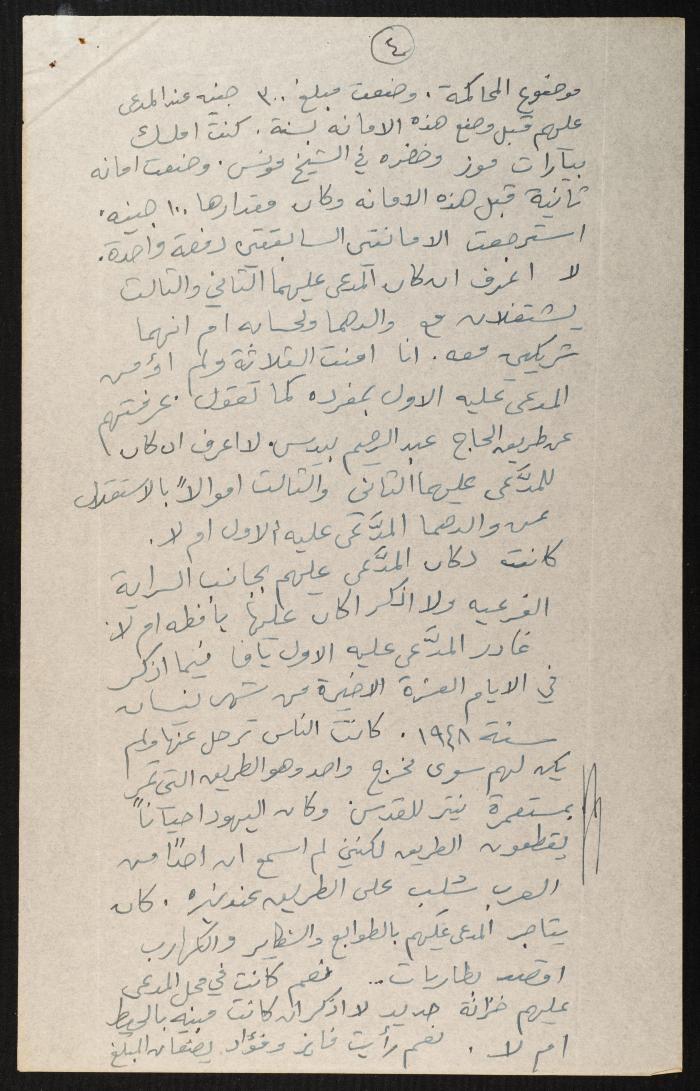 ٤
موضوع المحاكمة. وضعت مبلغ ٣٠٠ جنيه عند المدعى
عليهم قبل وضع هذه الامانه بسنة. كنت املك
بيارات موز وخضره في الشيخ مونس. وضعت امانه
ثانية قبل هذه الامانه وكان مقدارها ١٠٠ جنيه.
استرجعت الامانتين السابقتين دفعة واحدة.
لا اعرف ان كان المدعى عليهما الثاني والثالث
يشتغلان مع والدهما ولحسابه ام انهما
شريكين معه. انا امنت الثلاثة ولم اؤمن
المدعى عليه الاول بمفرده كما تقول. عرفتهم
عن طريق الحاج عبد الرحيم بيدس. لا اعرف ان كان
للمدَّعى عليهما الثاني والثالث اموالاً بالاستقلال
عن والدهما المدَّعى عليه الاول ام لا.
كانت دكان المدَّعى عليهم بجانب السراية
الفرعيه ولا اذكر اكان عليها يافطه ام لا.
غادر المدَّعى عليه الاول يافا فيما اذكر
في الايام العشرة الاخيرة من شهر نيسان
سنة ١٩٤٨. كانت الناس ترحل عنها ولم
يكن لهم سوى مخرج واحد وهو الطريق التي تمر
بمستعمرة نيتر للقدس وكان اليهود احياناً
يقطعون الطريق لكنني لم اسمع ان احدًا من
العرب سُلب على الطريق عند نيتر. كان
يتاجر المدعى عليهم بالطوابع والسكاير والكهارب
اقصد بطاريات... نعم كانت في محل المدعى
عليهم خزانة حديد لا اذكر ان كانت مبنيه بالحيط
ام لا. نعم رأيت فايز وفؤاد يضعان المبلغ